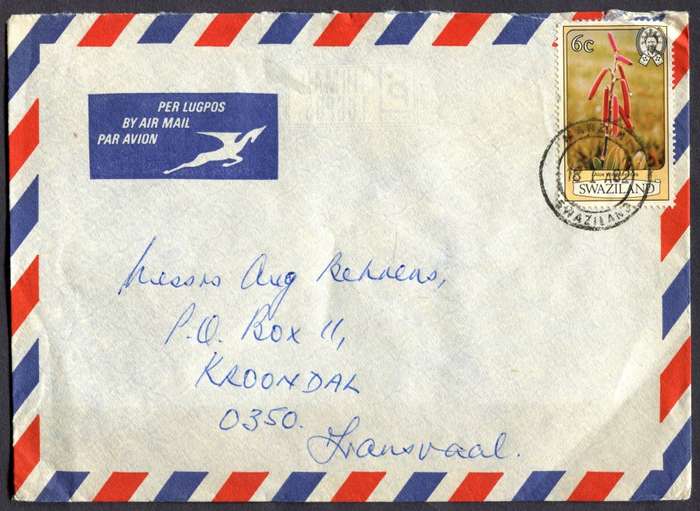 PER LUGPOS
BY AIR MAIL
PAR AVION
6c
SWAZILAND
MANZINI
SWAZILAND
Messrs Aug Behrens,
P.O. Box 11,
KROONDAL
0350.
Transvaal.